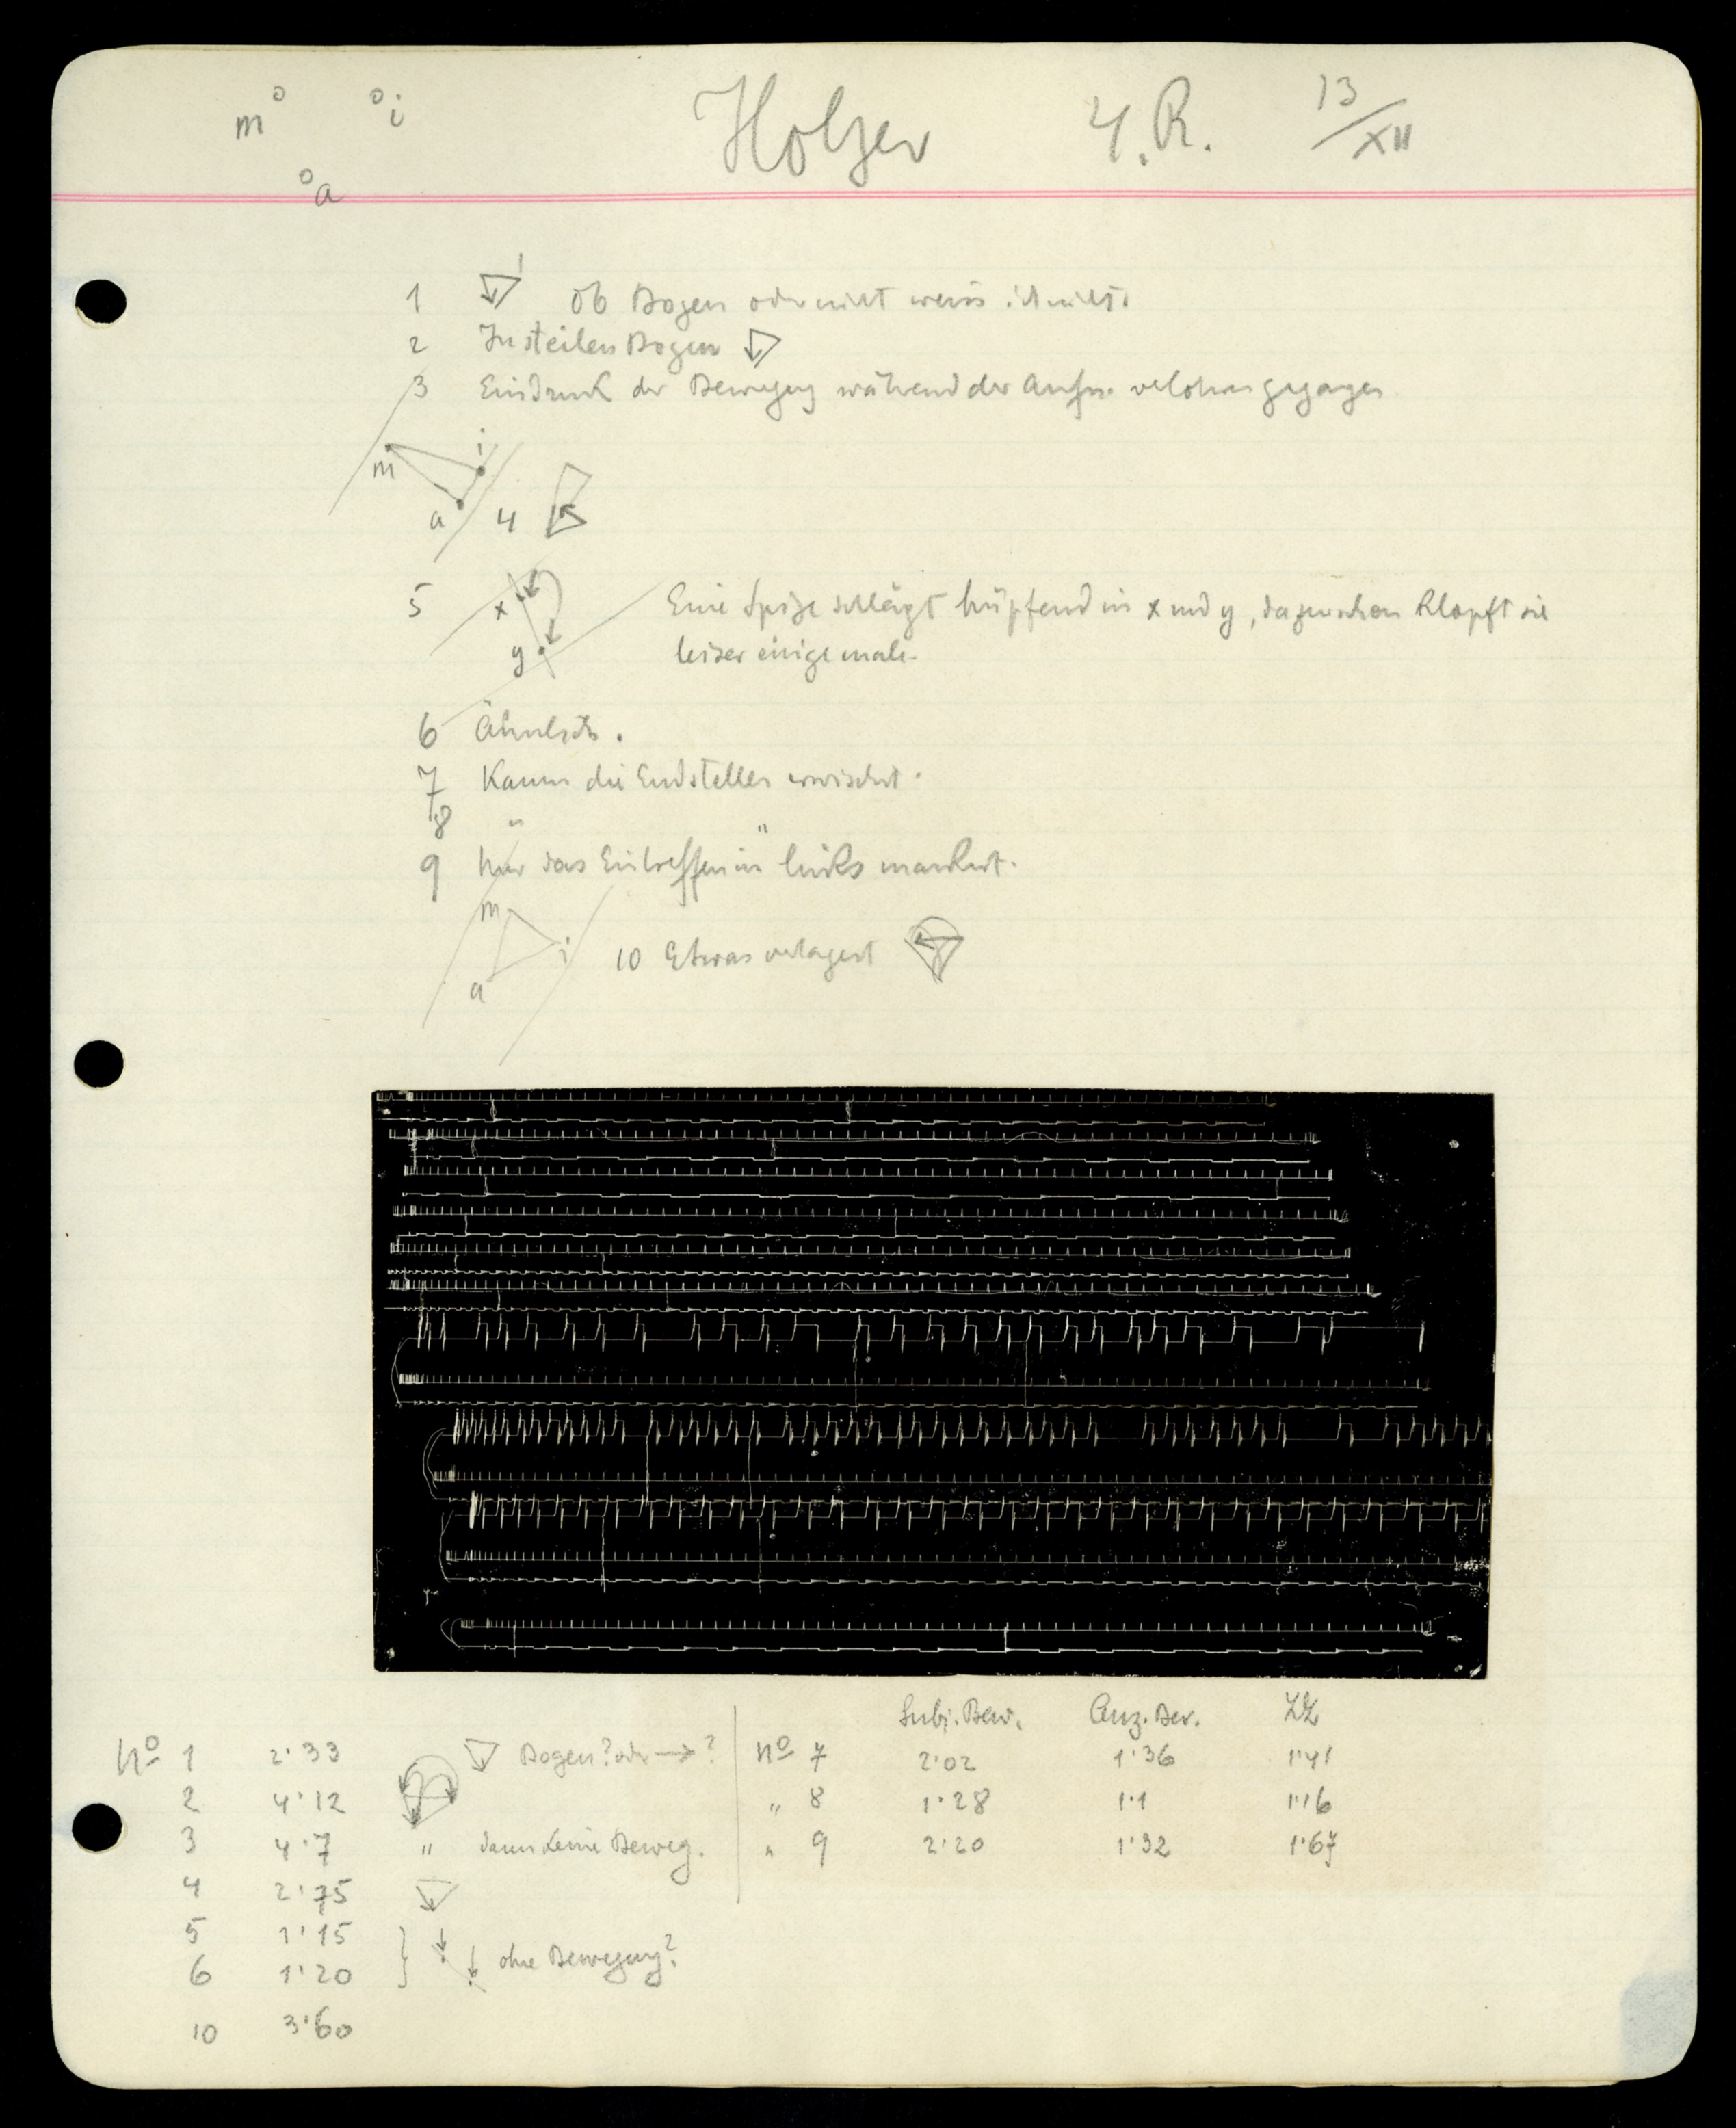 m i Holzer 4. R. 13/XII
a
1 Ob Bogen oder nicht weiss ich nicht.
2 In steilen Bogen
3 Eindruck der Bewegung während der Aufn. verloren gegangen
m i
a 4
5 x Eine Spize schlägt hüpfend in x und y, dazwischen klopft sie
y leiser einigemale.
6 Ähnlich.
7 Kaum die Endstellen erwischt.
8 " "
9 Nur das Eintreffen in links markiert.
m i
a 10 Etwas verlagert
Subj. Bew. Anz. Ber. ZZ
No 1 2·33 Bogen? oder → ? No 7 2·02 1·36 1·41
2 4·12 " 8 1·28 1·1 1·16
3 4·7 " dann keine Beweg. " 9 2·20 1·32 1·67
4 2·75
5 1·15
6 1·20 ohne Bewegung?
10 3·60